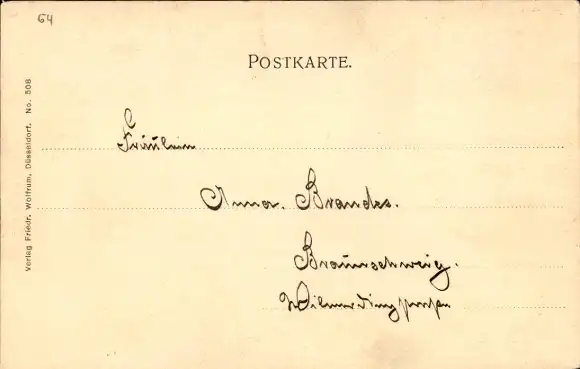 64
POSTKARTE.
Verlag Friedr. Wolfrum, Düsseldorf. No. 508
Fräulein
Anna. Brandes.
Braunschweig.